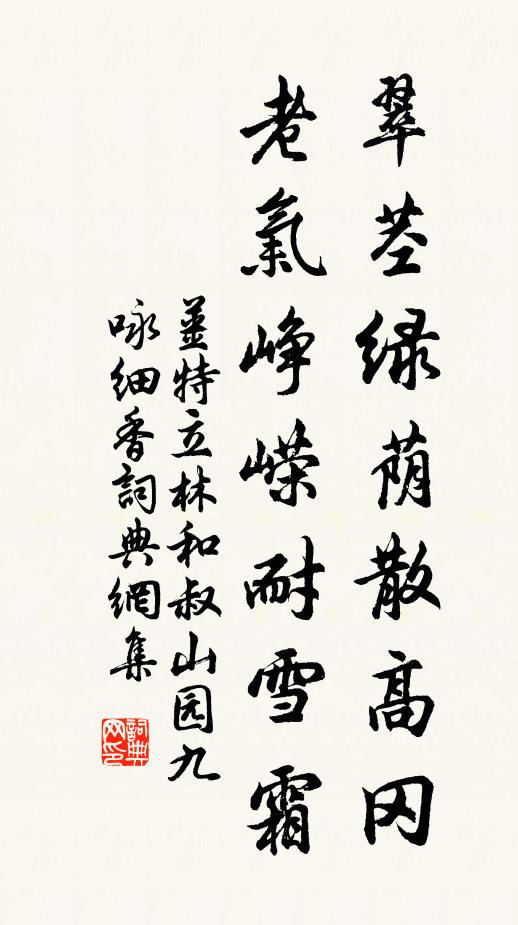 翠茎绿荫散高冈
老氣峥嵘耐雪霜
姜特立林和叔山园九
咏细香詞典網集
詞典網印